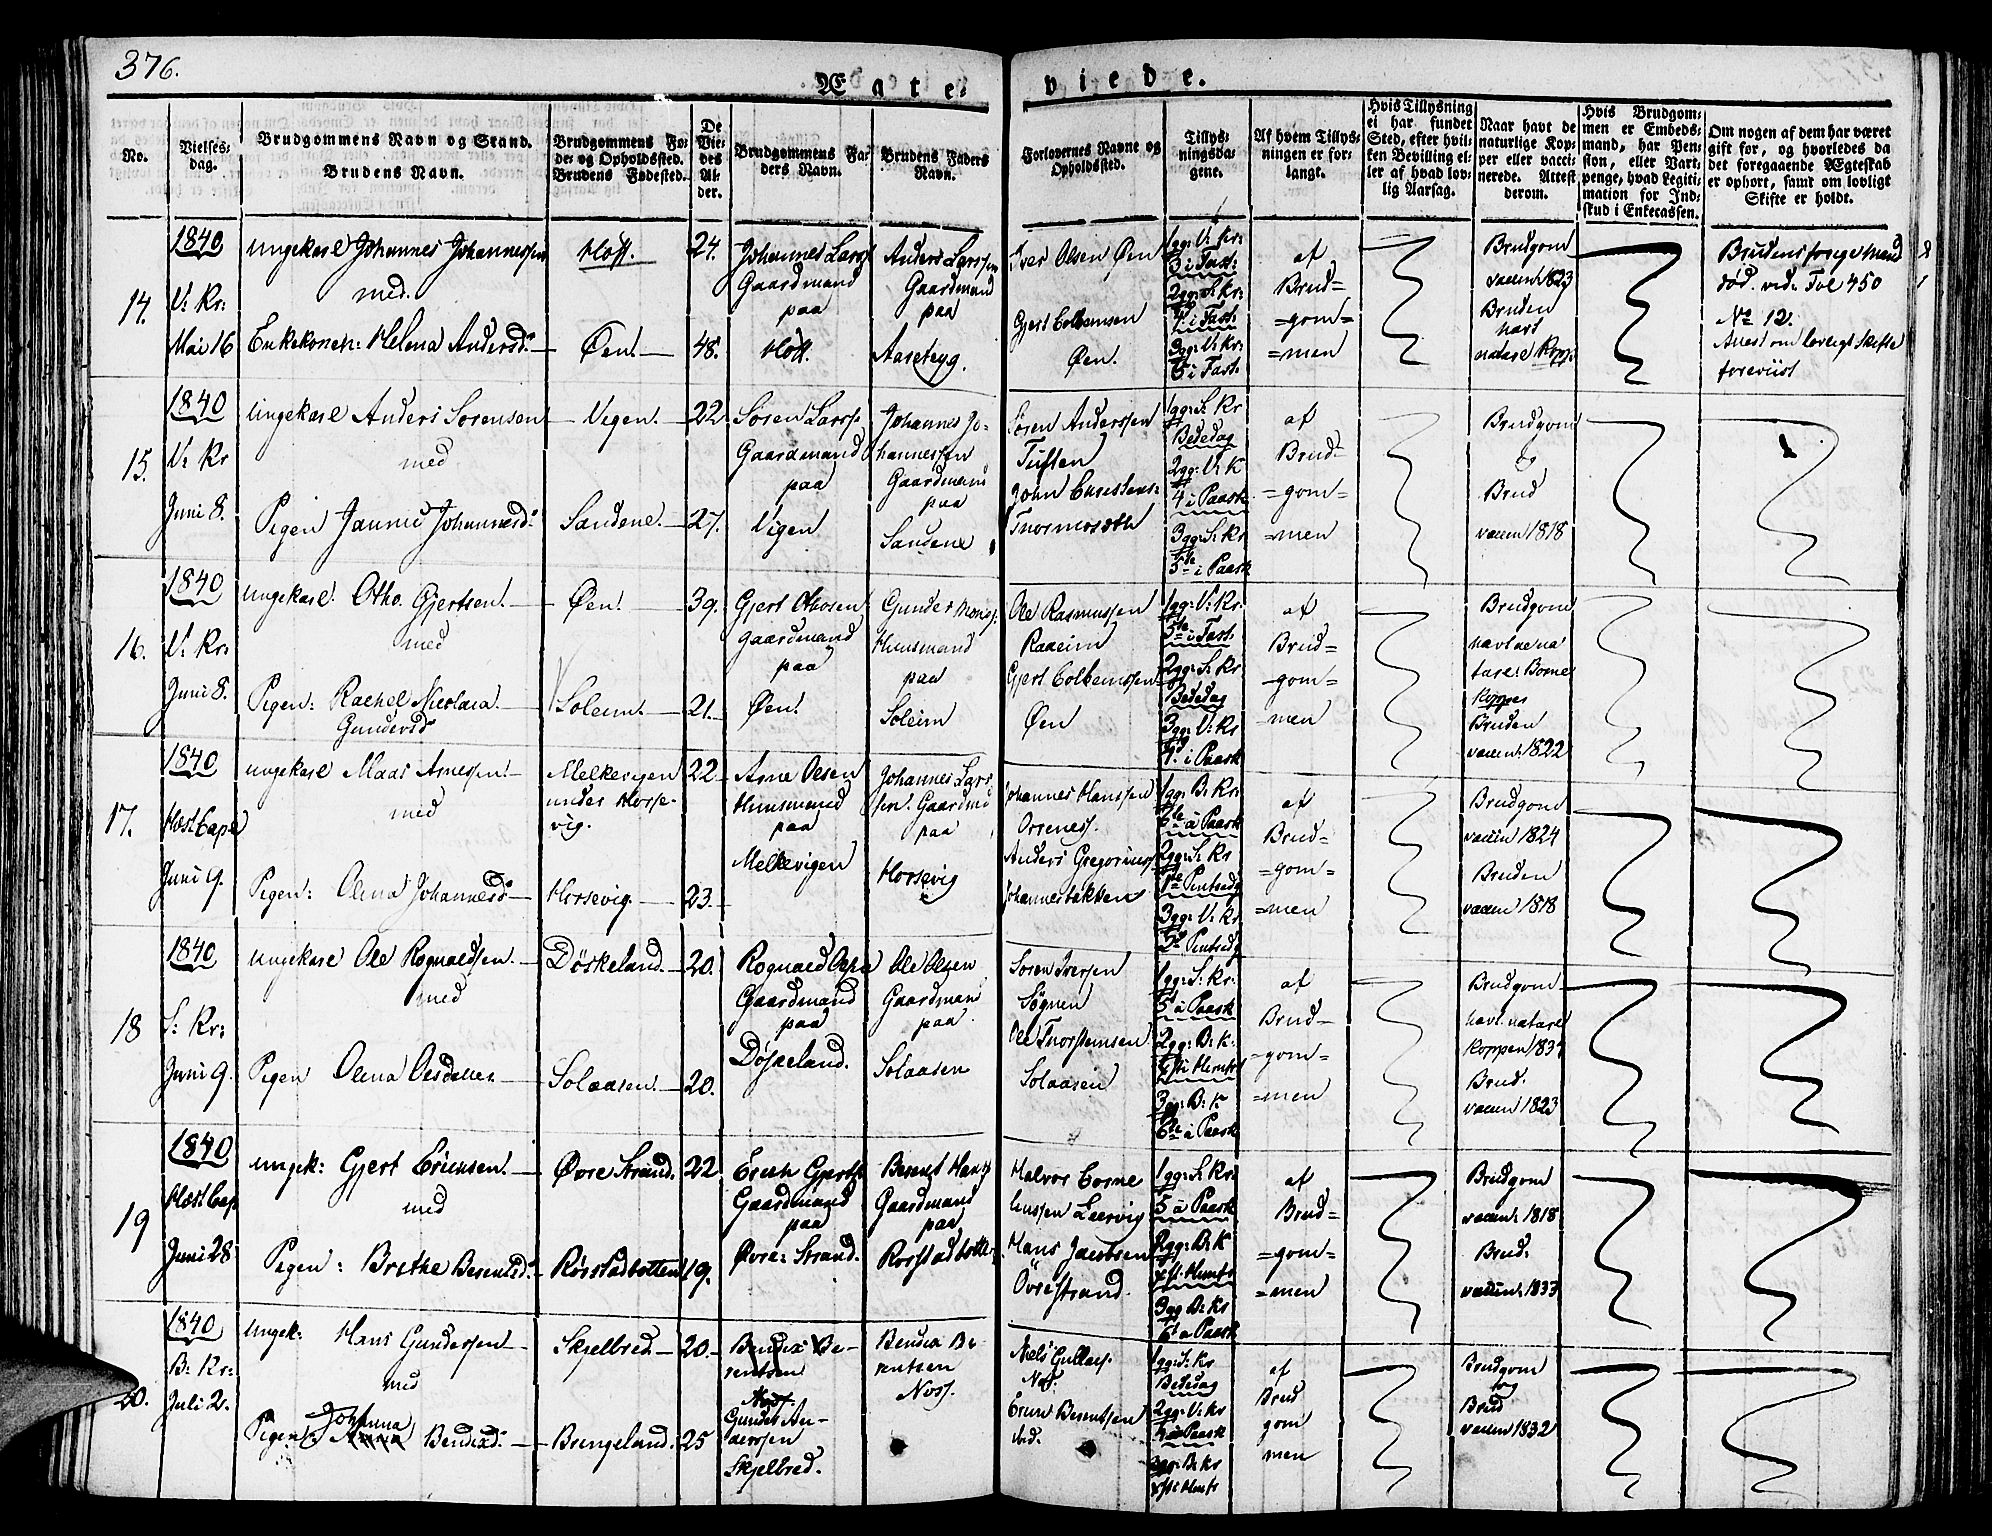 376.
Ægte
viede.
No.
Vielses-
dag.
Brudgommens Navn og Stand.
Brudens Navn.
Brudgommens Fø-
de- og Opholdssted.
Brudens Fødested.
De
Vie-
des
Al-
der.
Brudgommens Fa-
ders Navn.
Brudens Faders
Navn.
Forlovernes Navne og
Opholdssted.
Tillys-
ningsda-
gene.
Af hvem Tillys-
ningen er for-
langt.
Hvis Tillysning
ei har fundet
Sted, efter hvil-
ken Bevilling el-
ler af hvad lov-
lig Aarsag.
Naar havt de
naturlige Kop-
per eller vacci-
nerede. Attest
derom.
Hvis Brudgom-
men er Embeds-
mand, har Pen-
sion, eller Vart-
penge, hvad Legiti-
mation for Ind-
skud i Enkecassen.
Om nogen af dem har været
gift før, og hvorledes da
det foregaaende Ægteskab
er ophørt, samt om lovligt
Skifte er holdt.
14.
1840
V: Kr:
Mai 16
ungekarl Johannes Johannessen
med
Enkekonen: Helena Andersd:
Øen!
24.
48.
Johannes Larss
Gaardmand
paa
Anders Larssen
Gaardmand
paa
Iver Olsen Øen
Gjert Colbensen
Øen.
1gg: V: Kr:
3 i Fast.
2gg: S: Kr:
4 i Fast.
3gg: V: Kr:
5 i Fast.
af
Brud=
=gom=
=men
Brudgom
vaccin: 1823
Bruden
havt
naturl Kopp:
Brudens forige Mand
død. vid: Fol 450
No 12.
Attest om lovligt Skifte
foreviist
15.
1840
V: Kr
Juni 8.
Ungekarl Anders Sørensen
med
Pigen Jannie Johannesd:
Vigen.
Sandene.
22.
27.
Søren Larss.
Gaardmand
paa
Vigen
Johannes Jo-
hannessen
Gaardmand
paa
Sandene
Søren Anderssen
Tuften
John Christens:
1gg: S: Kr
Bededag
2gg: V: K
4 i Paask
3gg: S: Kr
5te i Paask
af
Brud=
=gom=
=men
Brudgom
&
Brud
vaccin 1818
16.
1840
V: Kr:
Juni 8.
ungekarl: Otho Gjertsen!
med
Pigen: Rachel Nicolina
Gundersd:
Øen!
Soleim.
39.
21.
Gjert Othosen
Gaardmand
paa
Øen!
Gunder Mons:
Huusmand
paa
Soleim
Ole Rasmussen
Raaeim
Gjert Colbenssen
Øen
1gg: V: Kr.
5te i Fast.
2gg: S: Kr
Bededag
3gg: V: Kr
4. i Paask
af
Brud=
-gom=
-men
Brudgom
havt de na
turl: Børne
kopper
Bruden
vaccin: 1822
17.
1840
Høst Capel
Juni 9.
ungekarl Maas Arnessen!
med
Pigen: Olina Johannesd:
Melkevigen
under Horse-
vig.
Horsevig.
22.
23.
Arne Olsen
Huusmand
paa
Melkevigen
Johannes Lars
sen! Gaardmd
paa
Horsevig
Johannes Hanssen
Orrenes.
Anders Gregorius:
Johannesbakken
1gg: B: Kr:
6te à Paask
2gg: S: Kr
1te Pintsedg
3gg: V: Kr
2d Pintsedg
af
Brud=
=gom=
=men
Brudgom
vaccin 1824
Bruden
vaccin 1818
18
1840
S: Kr:
Juni 9.
ungekarl Ole Rognaldsen.
med
Pigen Olina Olsdatter
Döskeland
Solaasen!
20.
20.
Gaardmand
paa
Döskeland.
Ole Olsen
Gaardmand
paa
Solaasen
Søren Iversen
Søgnen
Ole Thorsteinsen
Solaasen
1gg: S: Kr:
5t à Paask
2gg: B: K:
3gg: B: K
6te à Paask
af
Brud-
-gom=
=men
Brudgom
havt naturl
Koppen 1837
Brud.
vaccin 1823
19
1840
Høst Cap
Juni 28
ungk: Gjert Erichsen!
med
Pigen: Brithe Berentsd:
Øvre Strand.
Rörstadbotten
22
19.
Erich Gjerts
Gaardmand
paa
Øvre: Strand.
Berent Hans
Gaardmand
paa
Rorstadbotten
Halvor Corne
liussen Leervig
Hans Jacobsen
Övrestrand.
1gg: S: Kr:
5 a Paask
2gg: B: K
3gg B: Kr
6t a Paask
af
Brud=
=gom=
=men
Brudgom
vaccin: 1818
Brud:
vaccin: 1833
20.
1840
B: Kr:
Juli 2.
Ungk: Hans Gunderssen
med
Pigen: Johanna
Bendixd:
Skjelbred.
Brengeland.
20.
25
Bendix Be-
rentsen
Gunder An-
derssen
Skjelbred.
Bendix Be
rentsen
Noss.
Niels Gullacs.
Nos.
Berentsen
ibid.
1gg: S: Kr
Bededag
2gg: V: Kr
4 a Paask
3gg: B: Kr
af
Brud
gom
men
Brudgom
og
Brud
vaccin 1832